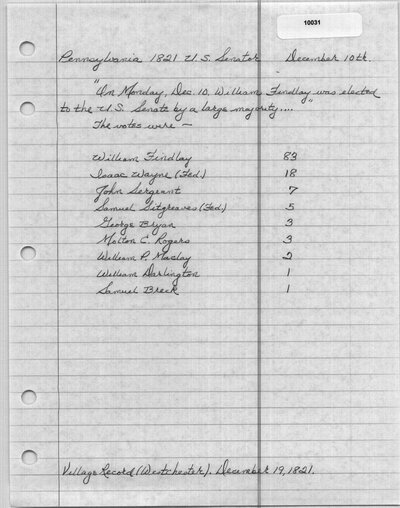 10031
Pennsylvania 1821 U.S. Senator December 10th.
"On Monday, Dec. 10, William Findlay was elected
to the U.S. Senate by a large majority...."
The votes were —
William Findlay 83
Isaac Wayne (Fed.) 18
John Sergeant 7
Samuel Sitgreaves (Fed.) 5
George Bryan 3
Molton C. Rogers 3
William P. Maclay 2
William Darlington 1
Samuel Breck 1
Village Record (Westchester). December 19, 1821.